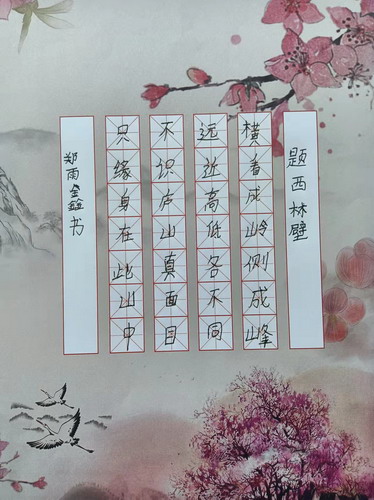 题西林壁
横看成岭侧成峰
远近高低各不同
不识庐山真面目
只缘身在此山中
郑雨鑫书